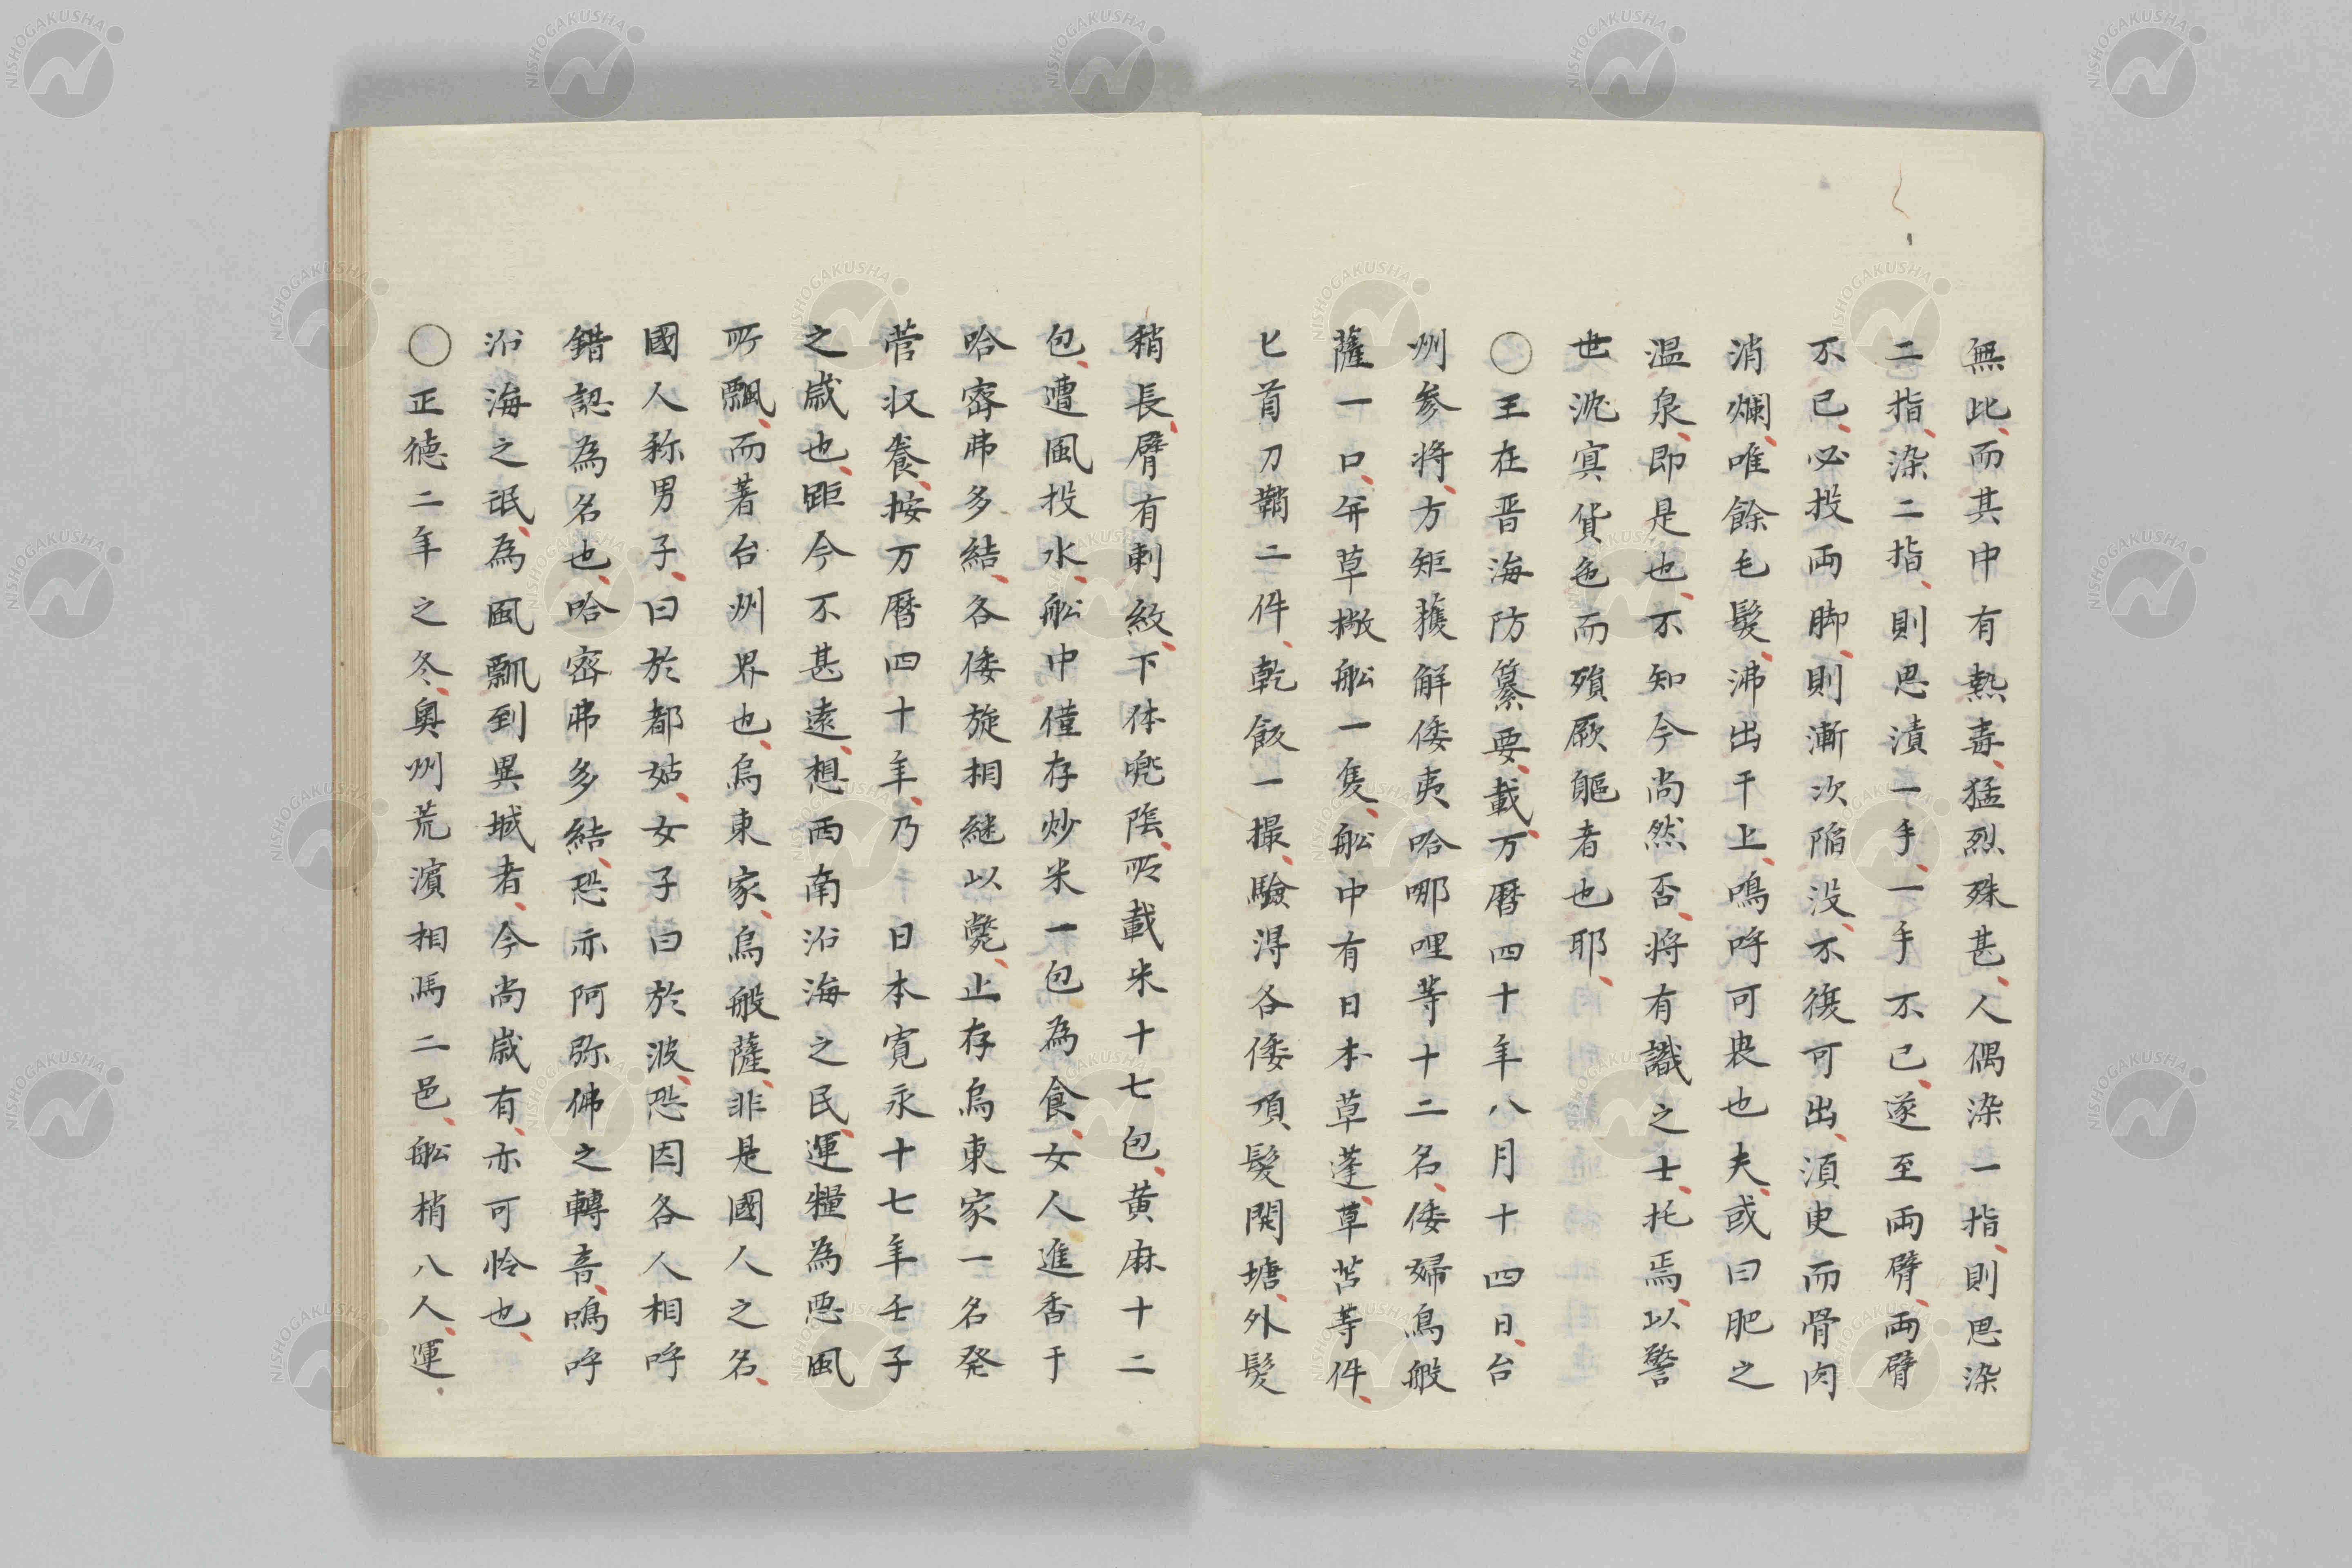 無比而其中有熱毒猛烈殊甚人偶染一指則思染
二指染二指則思漬一手一手不已遂至兩臂兩臂
不已必投両脚則漸次陥没不復可出湏臾而骨肉
消爛唯餘毛髮沸出于上嗚呼可畏也夫或曰肥之
温泉即是也不知今尚然否将有識之士托焉以警
世沈冥貨色而殞厥軀者也耶
〇王在晋海防纂要載万暦四十年八月十四日台
州参将方矩獲解倭夷哈哪哩等十二名倭婦烏般
薩一口并草撇舩一隻舩中有日本草蓬草苫等件
匕首刀鞘二件乾飯一撮驗淂各倭頂髮開塘外髮
稍長臂有刺紋下体兜隂所載米十七包黄麻十二
包遭風投水舩中僅存炒米一包為食女人進香于
哈密弗多結各倭旋相継以斃止存烏東家一名発
菅収養按万暦四十年乃 日本寛永十七年壬子
之歳也距今不甚遠想西南沿海之民運糧為悪風
所飄而著台州界也烏東家烏般薩非是國人之名
國人称男子曰於都姑女子曰於波恐因各人相呼
錯認為名也哈密弗多結恐亦阿弥佛之轉音嗚呼
沿海之氓為風飄到異域者今尚歳有亦可怜也
〇正徳二年之冬奥州荒濱相馬二邑舩梢八人運